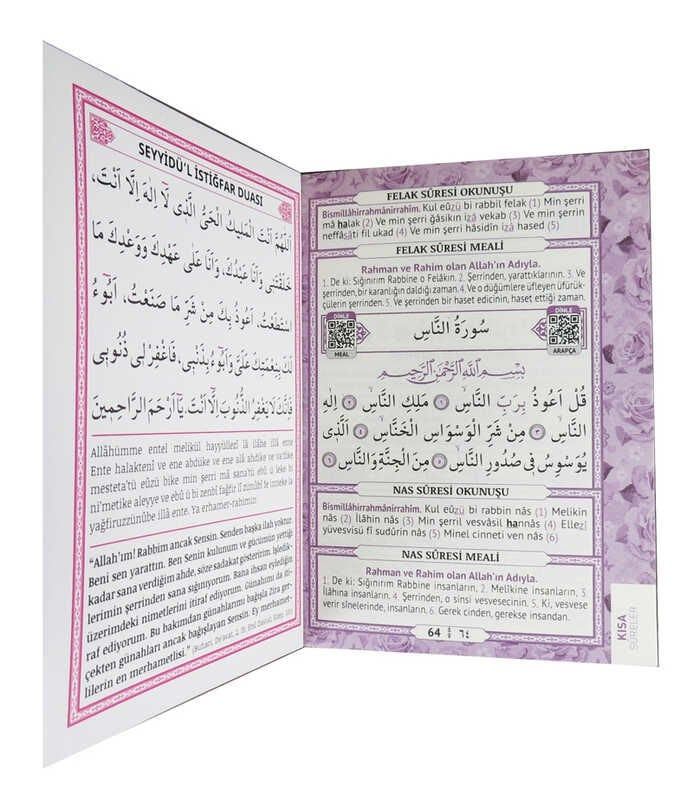 SEYYİDÜ'L İSTİĞFAR DUASI
اَللّٰهُمَّ اَنْتَ الْمَلِيكُ الْحَىُّ الَّذٖى لَٓا اِلٰهَ اِلَّٓا اَنْتَ،
خَلَقْتَنٖى وَاَنَا عَبْدُكَ، وَاَنَا عَلٰى عَهْدِكَ وَوَعْدِكَ مَا
اسْتَطَعْتُ، اَعُوذُ بِكَ مِنْ شَرِّ مَا صَنَعْتُ، اَبُٓوءُ
لَكَ بِنِعْمَتِكَ عَلَىَّ وَاَبُٓوءُ بِذَنْبٖى، فَاغْفِرْ لٖى ذُنُوبٖى
فَاِنَّكَ لَا يَغْفِرُ الذُّنُوبَ اِلَّٓا اَنْتَ. يَٓا اَرْحَمَ الرَّاحِمٖينَ
Allâhümme entel melikül hayyüllezî lâ ilâhe illâ ente
Ente halaktenî ve ene abdüke ve ene alâ ahdike ve va'dike
mesteta'tü eûzü bike min şerri mâ sana'tü ebû ü leke bi
ni'metike aleyye ve ebû ü bi zenbî fağfir lî zünûbî fe inneke la
yağfiruzzünûbe illâ ente. Ya erhamer-rahimin
"Allah'ım! Rabbim ancak Sensin. Senden başka ilah yoktur.
Beni sen yarattın. Ben Senin kulunum ve gücümün yettiği
kadar sana verdiğim ahde, söze sadakat gösteririm. İşledik-
lerimin şerrinden sana sığınıyorum. Bana ihsan eylediğin
üzerimdeki nimetlerini itiraf ediyorum. Günahımı da iti-
raf ediyorum. Bu bakımdan günahlarımı bağışla Zira ger-
çekten günahları ancak bağışlayan Sensin. Ey merhamet-
lilerin en merhametlisi."
FELAK SÛRESİ OKUNUŞU
Bismillâhirrahmânirrahîm. Kul eûzü bi rabbil felak (1) Min şerri
mâ halak (2) Ve min şerri ğâsikın izâ vekab (3) Ve min şerrin
neffâsâti fil ukad (4) Ve min şerri hâsidin izâ hased (5)
FELAK SÛRESİ MEALİ
Rahman ve Rahim olan Allah'ın Adıyla.
1. De ki: Sığınırım Rabbine o Felâkın. 2. Şerrinden, yarattıklarının. 3. Ve
şerrinden, bir karanlığın daldığı zaman. 4. Ve o düğümlere üfleyen üfürük-
çülerin şerrinden. 5. Ve şerrinden bir haset edicinin, haset ettiği zaman.
DİNLE
MEAL
سُورَةُ النَّاسِ
DİNLE
ARAPÇA
بِسْمِ اللّٰهِ الرَّحْمٰنِ الرَّحٖيمِ
قُلْ اَعُوذُ بِرَبِّ النَّاسِ ۙ ١ مَلِكِ النَّاسِ ۙ ٢ اِلٰهِ
النَّاسِ ۙ ٣ مِنْ شَرِّ الْوَسْوَاسِ الْخَنَّاسِ ۙ ٤ اَلَّذٖى
يُوَسْوِسُ فٖى صُدُورِ النَّاسِ ۙ ٥ مِنَ الْجِنَّةِ وَالنَّاسِ ٦
NAS SÛRESİ OKUNUŞU
Bismillâhirrahmânirrahîm. Kul eûzü bi rabbin nâs (1) Melikin
nâs (2) İlâhin nâs (3) Min şerril vesvâsil hannâs (4) Ellezî
yüvesvisü fî sudûrin nâs (5) Minel cinneti ven nâs (6)
NAS SÛRESİ MEALİ
Rahman ve Rahim olan Allah'ın Adıyla.
1. De ki: Sığınırım Rabbine insanların, 2. Melikine insanların, 3.
İlâhına insanların. 4. Şerrinden, o sinsi vesvesecinin, 5. Ki, vesvese
verir sînelerinde, insanların. 6. Gerek cinden, gerekse insandan.
64 ٦٤
KISA
SURELER